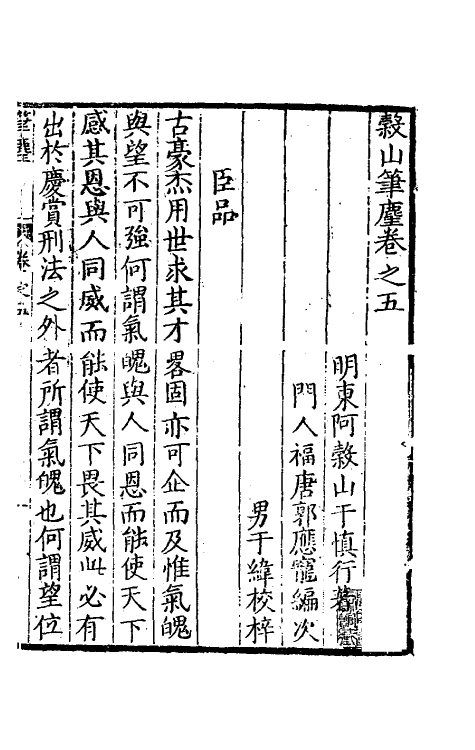 糓山筆麈卷之五
明東阿糓山于慎行著
門人福唐郭應寵編次
男于緯校梓
臣品
古豪杰用世求其才畧固亦可企而及惟氣魄
與望不可強何謂氣魄與人同恩而能使天下
感其恩與人同威而能使天下畏其威此必有
出於慶賞刑法之外者所謂氣魄也何謂望位
筆麈